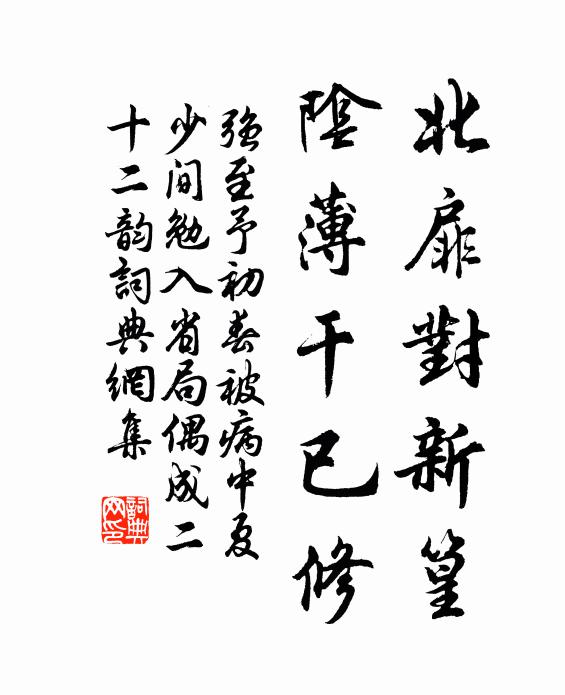 北扉對新篁
陰薄干已修
强至予初春被病中夏
少间勉入省局偶成二
十二韵詞典網集
詞典網印